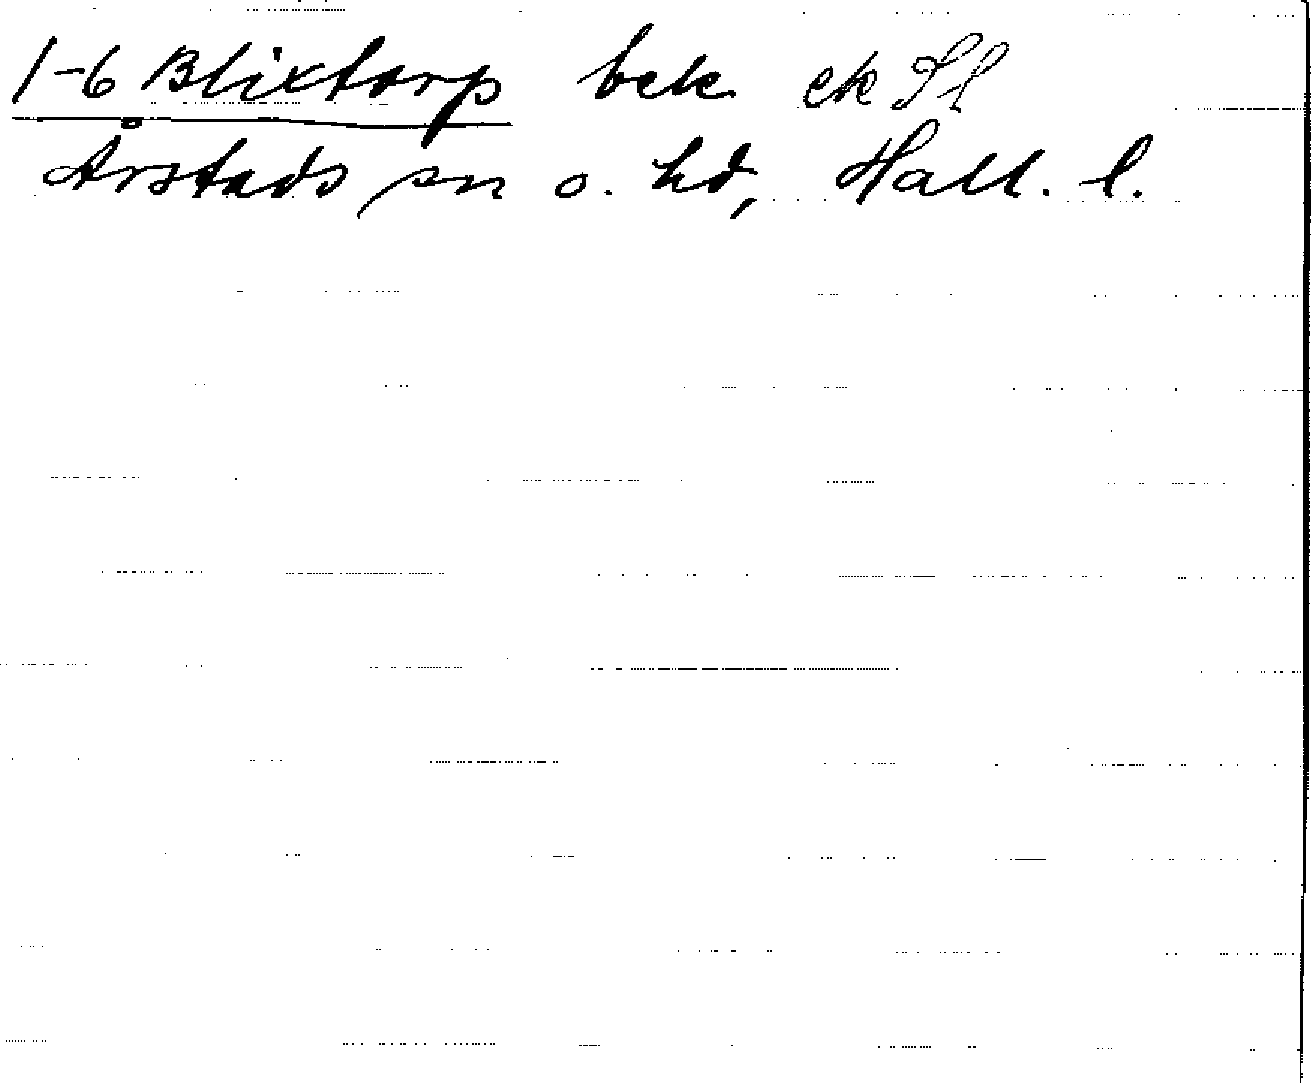 1-6 Blixtorp bek ek Sl
Årstads sn o. hd, Hall. l.